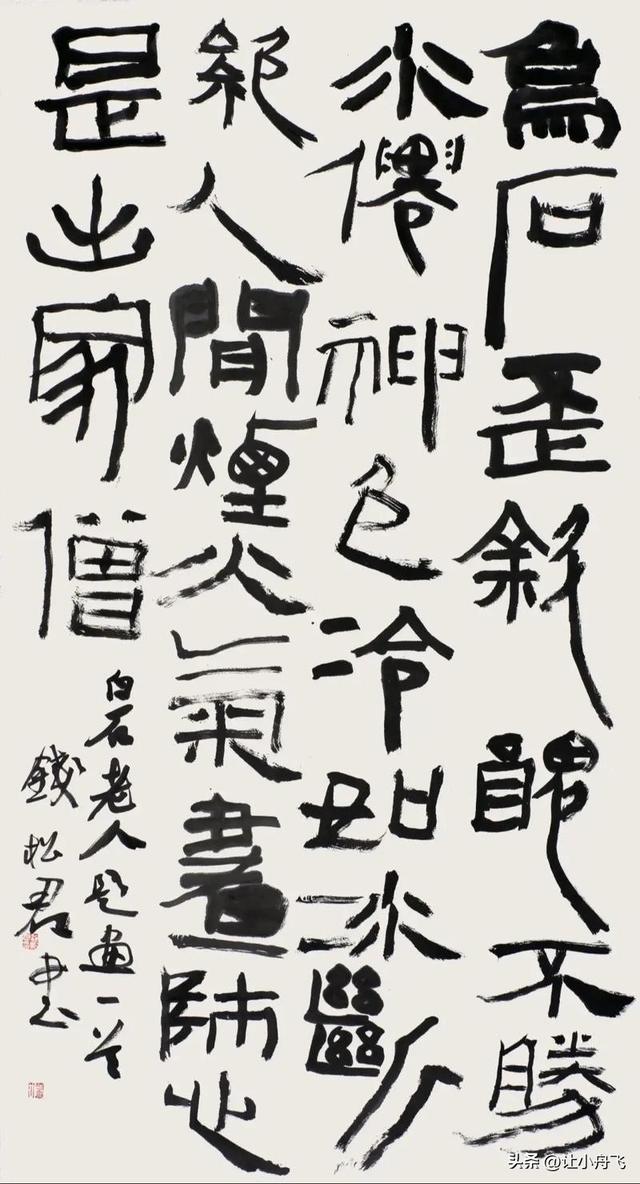 烏石歪斜不勝
水僊神色冷如冰斷
絕人間煙火氣畫師心
是出家僧
白石老人題畫一首
錢松君書
头条 @让小舟飞